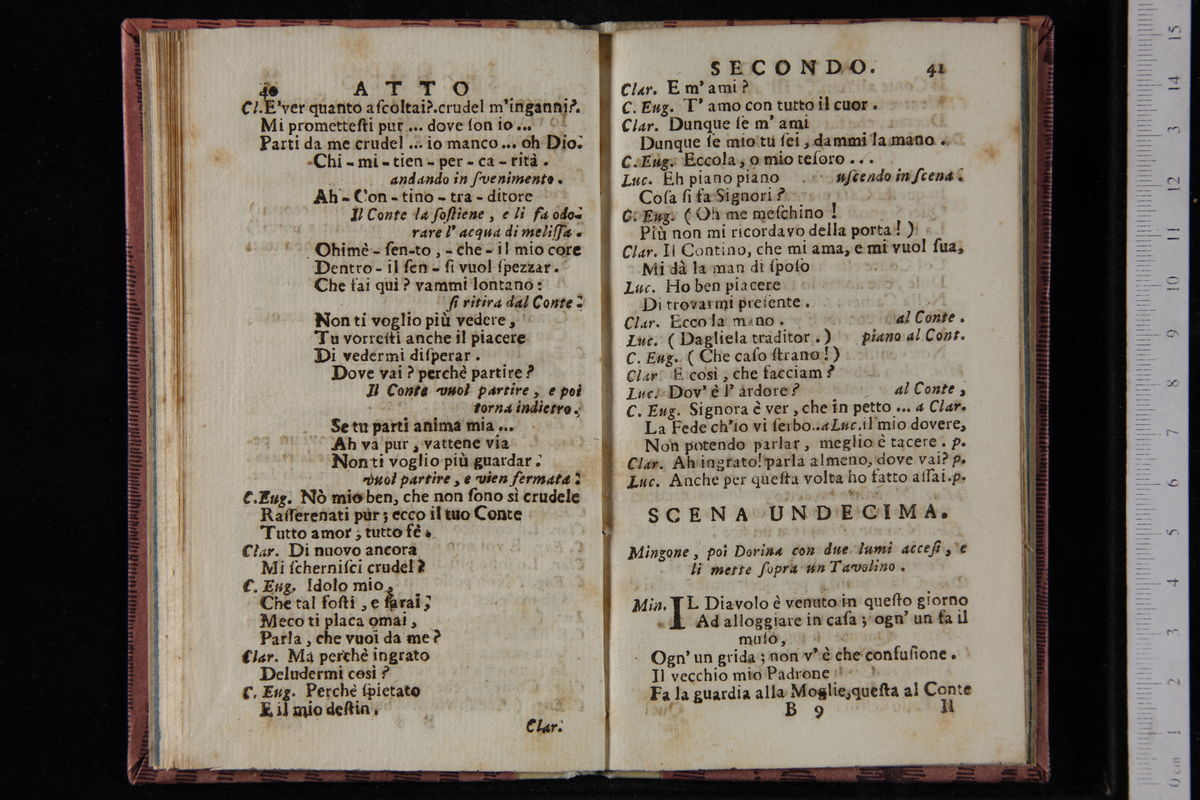 40 ATTO
Cl. E'ver quanto aſcoltai?.crudel m'inganni?.
Mi prometteſti pur ... dove ſon io ...
Parti da me crudel ... io manco ... oh Dio.
Chi - mi - tien - per - ca - rità .
andando in ſvenimento .
Ah - Con - tino - tra - ditore
Il Conte la ſoſtiene , e li fa odo-
rare l' acqua di meliſſa .
Ohimè - ſen-to , - che - il mio core
Dentro - il ſen - ſi vuol ſpezzar .
Che fai quì ? vammi lontano :
ſi ritira dal Conte .
Non ti voglio più vedere ,
Tu vorreſti anche il piacere
Di vedermi diſperar .
Dove vai ? perchè partire ?
Il Conte vuol partire , e poi
torna indietro .
Se tu parti anima mia ...
Ah va pur , vattene via
Non ti voglio più guardar .
vuol partire , e vien fermata .
C.Eug. Nò mio ben, che non ſono sì crudele
Raſſerenati pur ; ecco il tuo Conte
Tutto amor , tutto fè .
Clar. Di nuovo ancora
Mi ſcherniſci crudel ?
C. Eug. Idolo mio ,
Che tal foſti , e ſarai ,
Meco ti placa omai ,
Parla , che vuoi da me ?
Clar. Ma perchè ingrato
Deludermi così ?
C. Eug. Perchè ſpietato
E il mio deſtin .
Clar.
SECONDO. 41
Clar. E m' ami ?
C. Eug. T' amo con tutto il cuor .
Clar. Dunque ſe m' ami
Dunque ſe mio tu ſei , dammi la mano .
C. Eug. Eccola , o mio teſoro . . .
Luc. Eh piano piano uſcendo in ſcena .
Coſa ſi fa Signori ?
C. Eug. ( Oh me meſchino !
Più non mi ricordavo della porta ! )
Clar. Il Contino, che mi ama, e mi vuol ſua,
Mi dà la man di ſpoſo
Luc. Ho ben piacere
Di trovarmi preſente .
Clar. Ecco la mano . al Conte .
Luc. ( Dagliela traditor . ) piano al Cont.
C. Eug. ( Che caſo ſtrano ! )
Clar. E così , che facciam ?
Luc. Dov' è l' ardore ? al Conte ,
C. Eug. Signora è ver , che in petto ... a Clar.
La Fede ch'io vi ſerbo..a Luc. il mio dovere,
Non potendo parlar , meglio è tacere . p.
Clar. Ah ingrato! parla almeno, dove vai? p.
Luc. Anche per queſta volta ho fatto aſſai.p.
SCENA UNDECIMA.
Mingone , poi Dorina con due lumi acceſi , e
li mette ſopra un Tavolino .
Min. IL Diavolo è venuto in queſto giorno
Ad alloggiare in caſa ; ogn' un fa il
muſo ,
Ogn' un grida ; non v' è che confuſione .
Il vecchio mio Padrone
Fa la guardia alla Moglie, queſta al Conte
B 9 Il